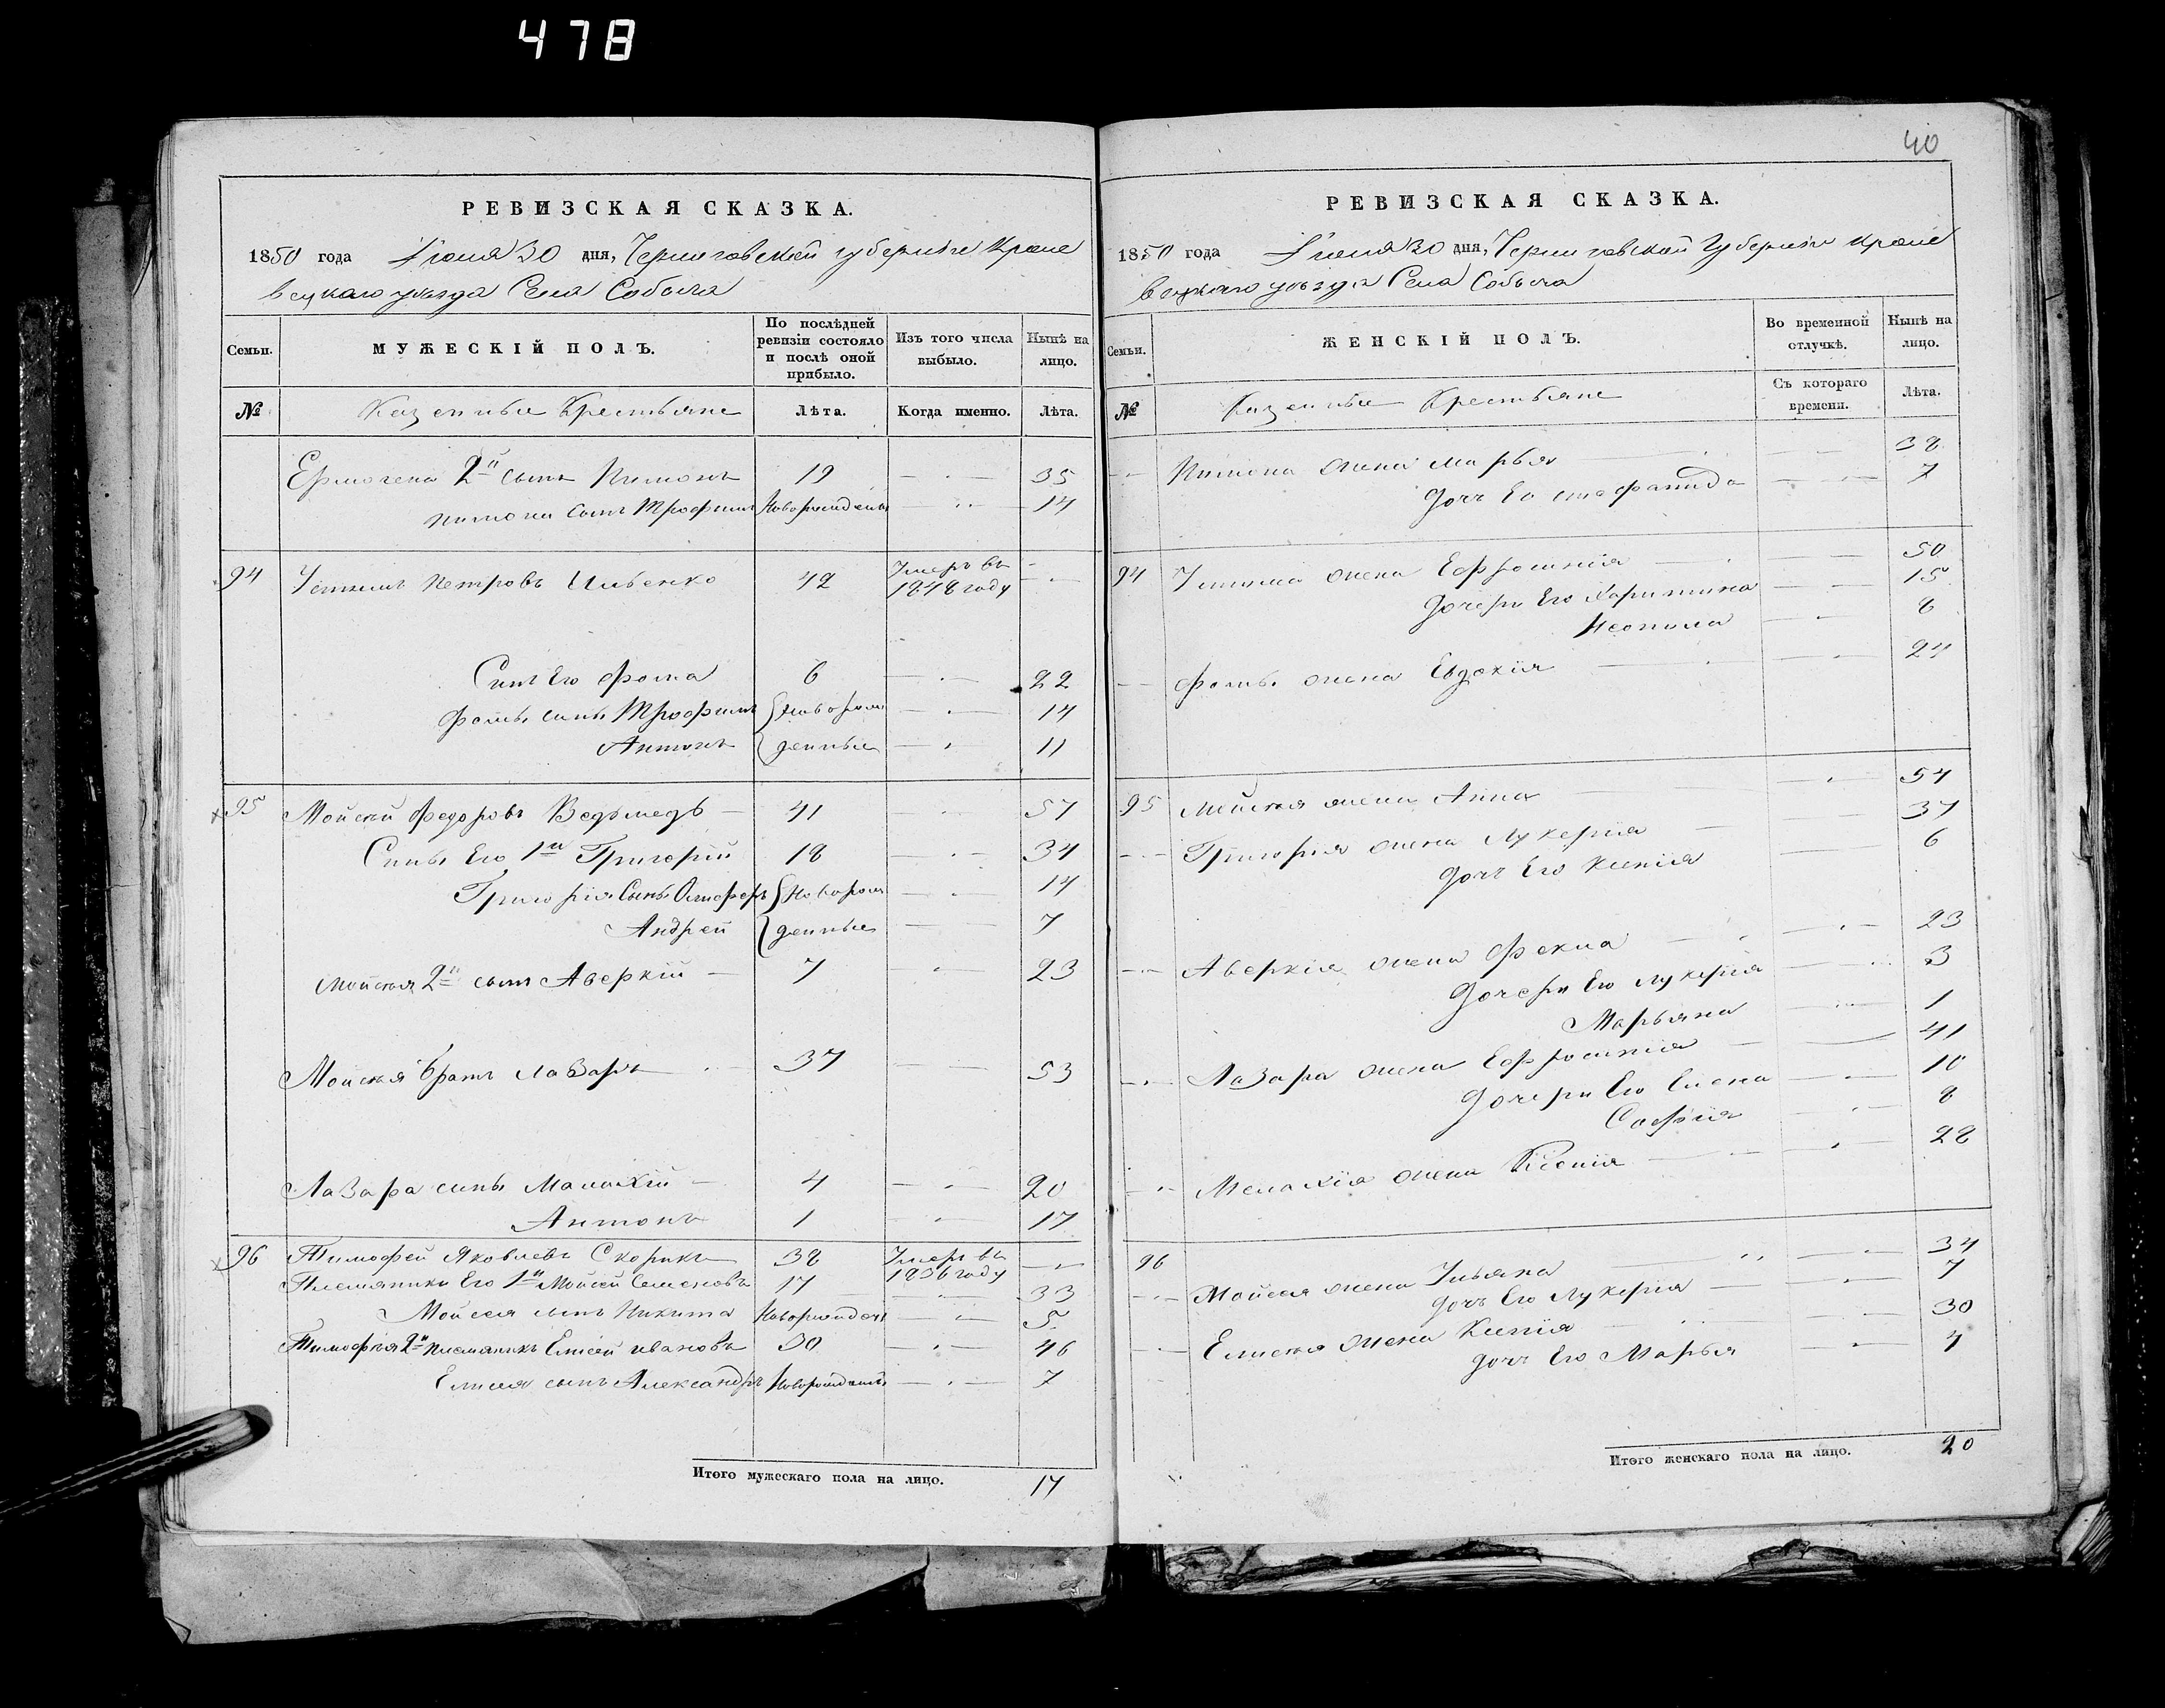 478
РЕВИЗСКАЯ СКАЗКА.
1850 года Июня 30 дня, Черниговской губернiи Кроле
вецкаго уѣзда Села Собыча
Семьи.
МУЖЕСКІЙ ПОЛЪ.
По послѣдней ревизіи состояло и послѣ оной прибыло.
Изъ того числа выбыло.
Нынѣ на лицо.
№ Казенные Крестьяне Лѣта. Когда именно. Лѣта.
Ермогена 2й сынъ Пимонъ 19 35
Пимона сынъ Трофимъ Новорожденъ 14
94 Устимъ Петровъ Ильенко 42 Умеръ въ 1848 году
Сынъ Его Фома 6 22
Фомы сынъ Трофимъ Новорож 14
Антонъ денные 11
95 Мойсей Федоровъ Ведьмедь 41 57
Сынъ Его 1й Григорій 18 34
Григорія Сынъ Новорож 14
Андрей денные 7
Мойсея 2й сынъ Аверкій 7 23
Мойсея братъ Лазаръ 37 53
Лазара сины Малахій 4 20
Антонъ 1 17
96 Тимофей Яковлевъ Скорикъ 38 Умеръ въ 1836 году
Племянники Его 1й Мойсей Семеновъ 17 33
Мойсея сынъ Никита Новорожден 5
Тимофѣя 2й племяникъ Елисей Ивановъ 30 46
Елисея сынъ Александръ Новорожденъ 7
Итого мужескаго пола на лицо. 17
40
РЕВИЗСКАЯ СКАЗКА.
1850 года Июня 30 дня, Черниговской Губернiи Кроле
вецкаго уѣзда Села Собыча
Семьи.
ЖЕНСКІЙ ПОЛЪ.
Во временной отлучкѣ.
Нынѣ на лицо.
№ Казенные Крестьяне Съ котораго времени. Лѣта.
Пимона жена Марья 38
дочь Его Стефанида 7
94 Устима жена Ефросинія 50
дочери Его Харитина 15
Неонила 8
Фомы жена Евдокія 24
95 Мойсея жена Анна 54
Григорія жена Лукерія 37
дочь Его Ксенія 6
Аверкія жена Фекла 23
дочери Его Лукерія 3
Марьяна 1
Лазара жена Ефросинія 41
дочери Его Елена 10
Софія 8
Малахія жена Ксенія 28
96 Мойсея жена Ульяна 34
дочь Его Лукерія 7
Елисея жена Ксенія 30
дочь Его Марья 4
Итого женскаго пола на лицо. 20